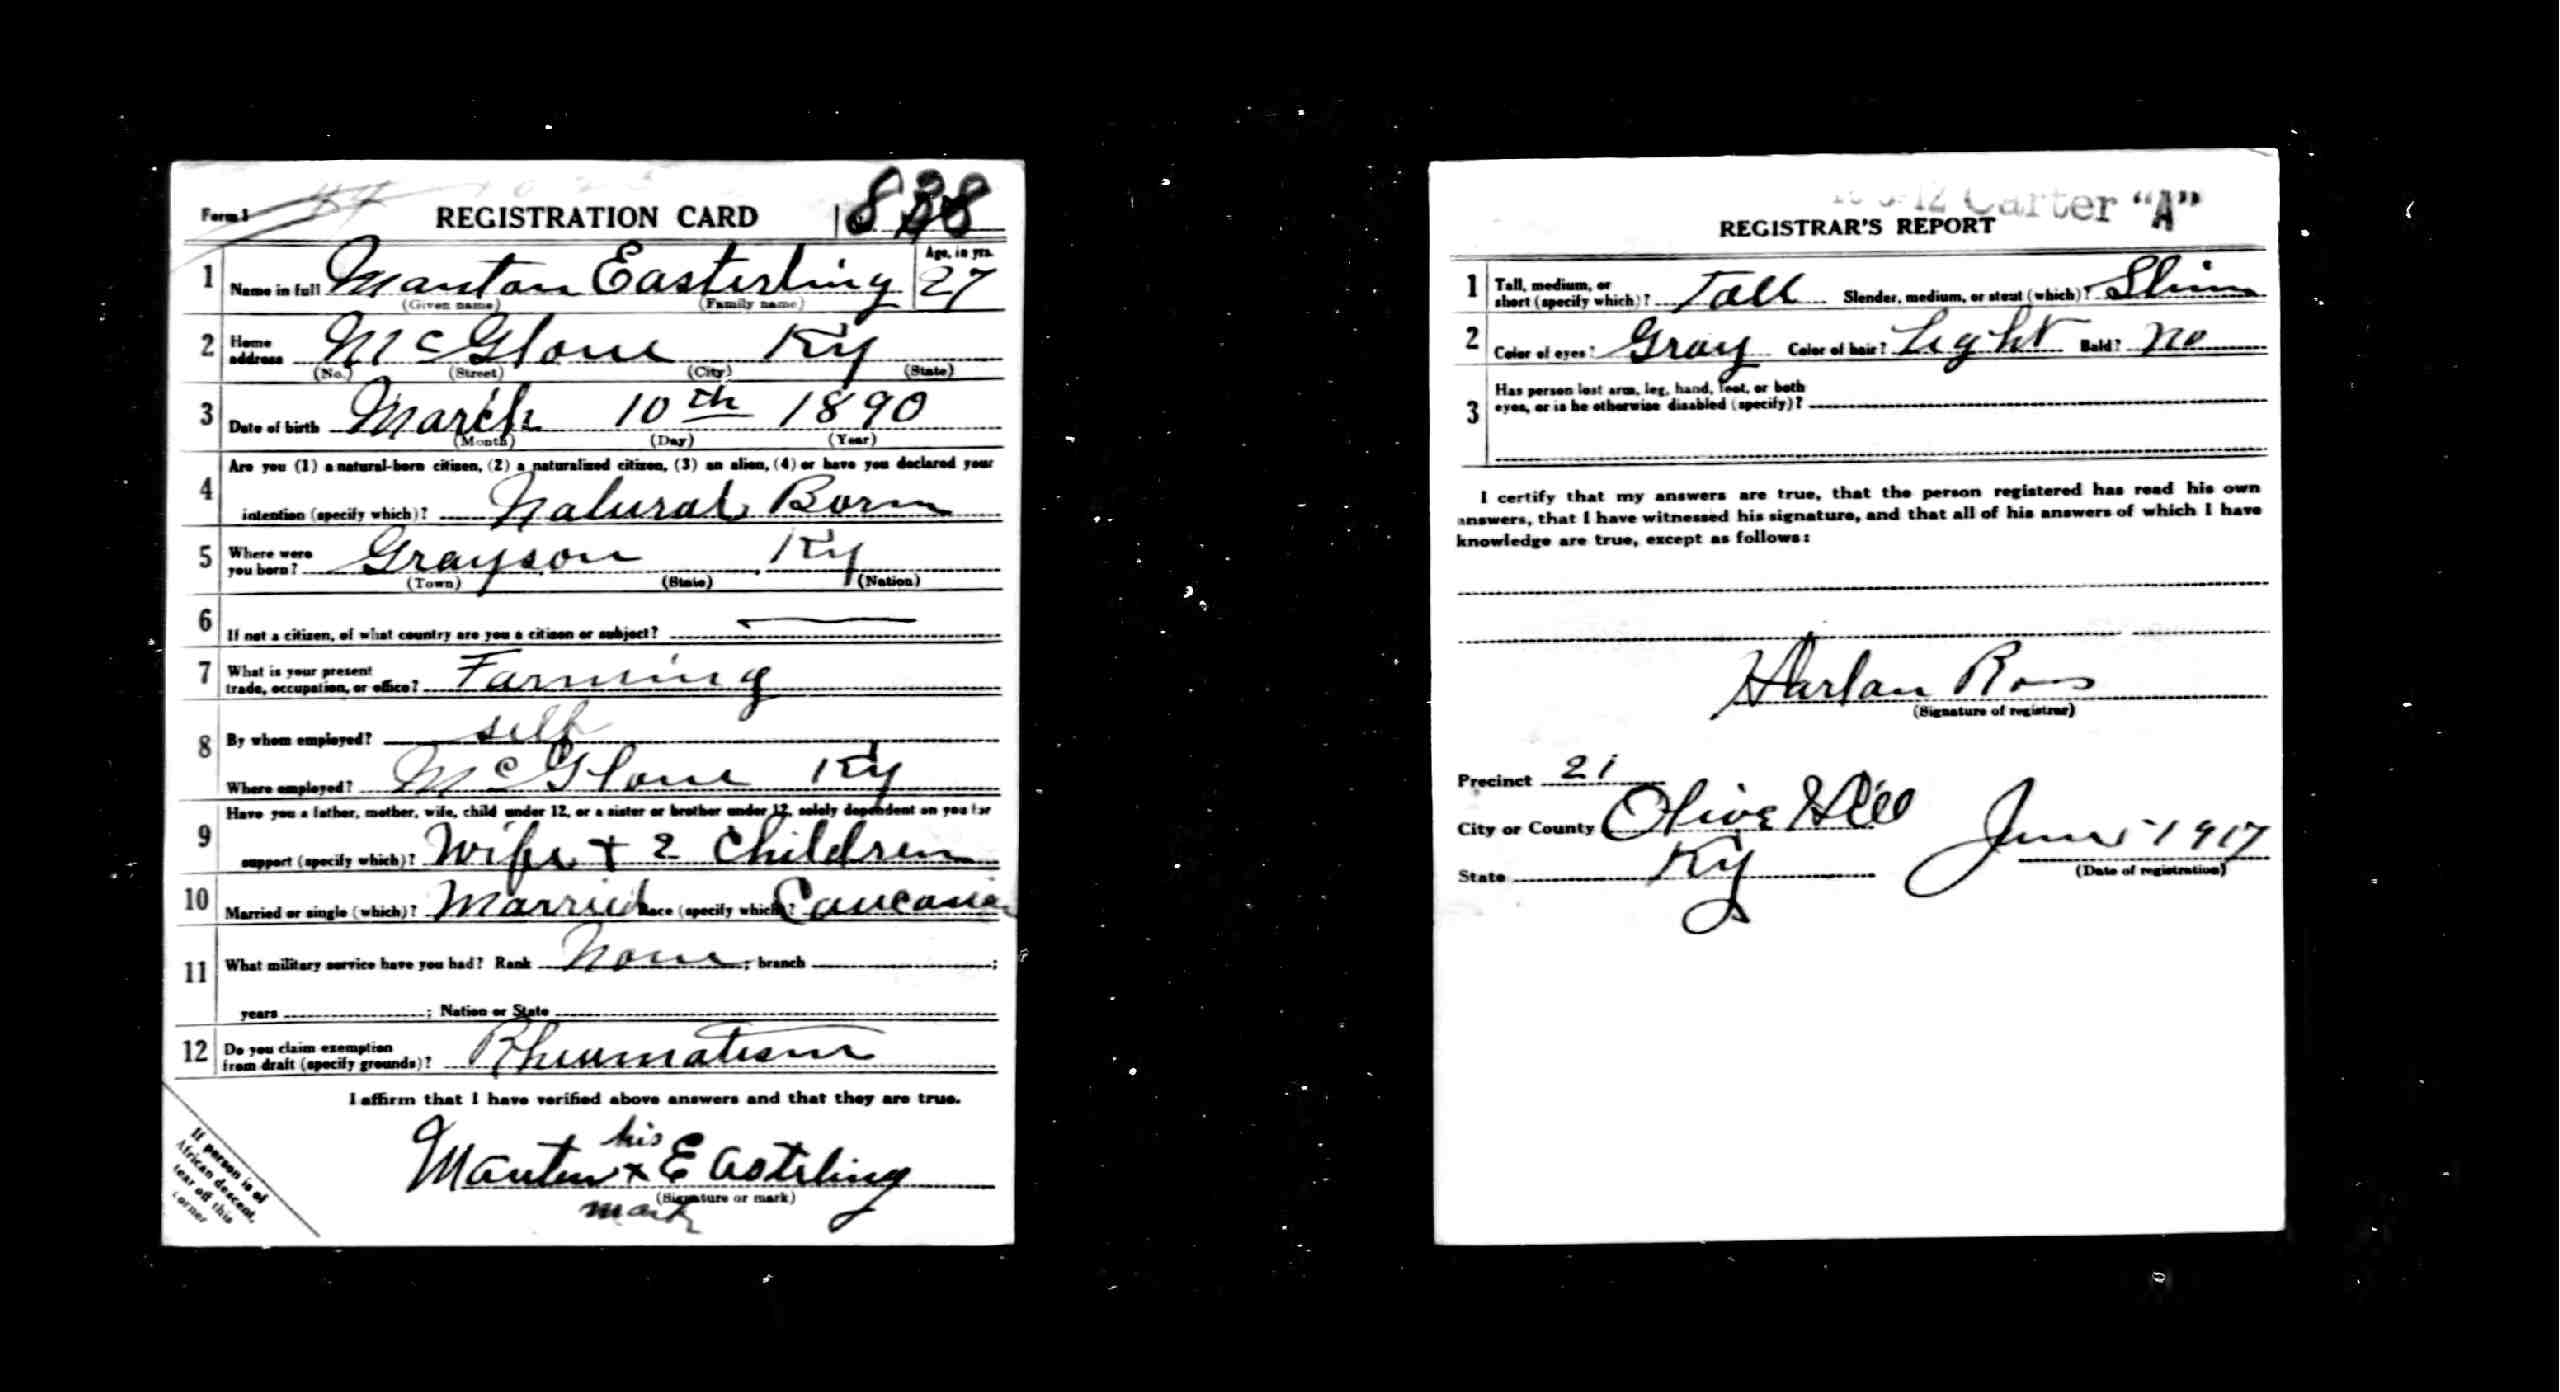 Form 1 REGISTRATION CARD 838
1 Name in full Manton Easterling Age, in yrs. 27
(Given name) (Family name)
2 Home address McGlone Ky
(No.) (Street) (City) (State)
3 Date of birth March 10th 1890
(Month) (Day) (Year)
4 Are you (1) a natural-born citizen, (2) a naturalized citizen, (3) an alien, (4) or have you declared your
intention (specify which)? Natural Born
5 Where were you born? Grayson Ky
(Town) (State) (Nation)
6 If not a citizen, of what country are you a citizen or subject?
7 What is your present trade, occupation, or office? Farming
8 By whom employed? self
Where employed? McGlone Ky
9 Have you a father, mother, wife, child under 12, or a sister or brother under 12, solely dependent on you for
support (specify which)? Wife + 2 Children
10 Married or single (which)? Married Race (specify which)? Caucasian
11 What military service have you had? Rank None; branch ;
years ; Nation or State
12 Do you claim exemption from draft (specify grounds)? Rheumatism
I affirm that I have verified above answers and that they are true.
his
Manten x Easterling
(Signature or mark)
mark
If person is of
African descent,
tear off this
corner
Carter "A"
REGISTRAR'S REPORT
1 Tall, medium, or short (specify which)? Tall Slender, medium, or stout (which)? Slim
2 Color of eyes? Gray Color of hair? Light Bald? No
3 Has person lost arm, leg, hand, foot, or both
eyes, or is he otherwise disabled (specify)?
I certify that my answers are true, that the person registered has read his own
answers, that I have witnessed his signature, and that all of his answers of which I have
knowledge are true, except as follows:
Harlan Ross
(Signature of registrar)
Precinct 21
City or County Olive Hill
State Ky June 5 1917
(Date of registration)